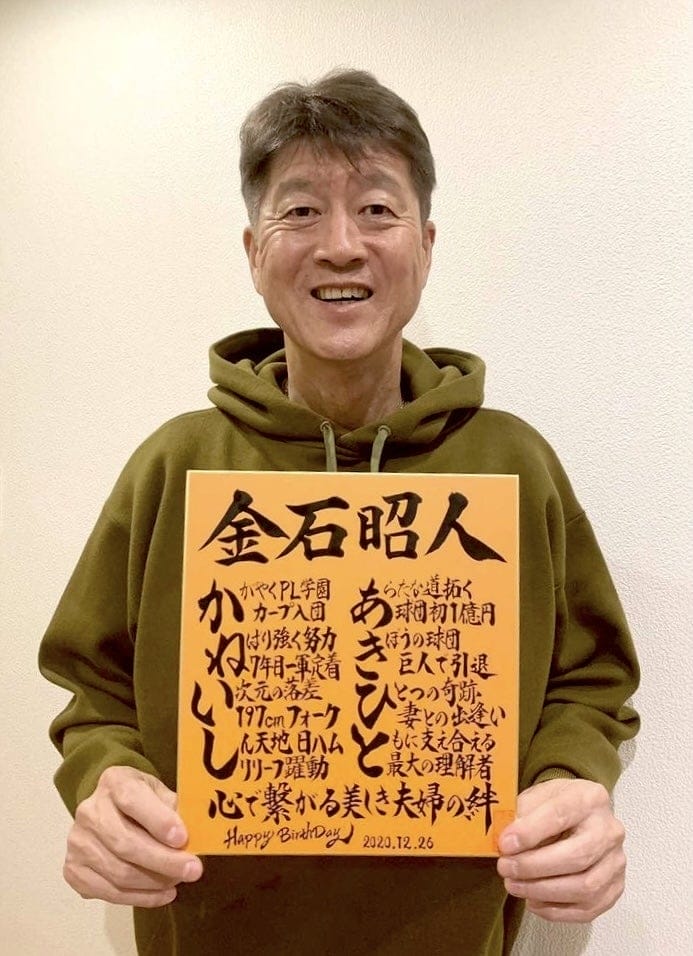 金石昭人
かがやくPL学園
カープ入団
ねばり強く努力
7年目一軍定着
い次元の落差
197cmフォーク
しん天地 日ハム
リリーフ躍動
あらたな道拓く
球団初1億円
きぼうの球団
巨人で引退
ひとつの奇跡、
妻との出逢い
ともに支え合える
最大の理解者
心で繋がる美しき夫婦の絆
Happy BirthDay 2020.12.26